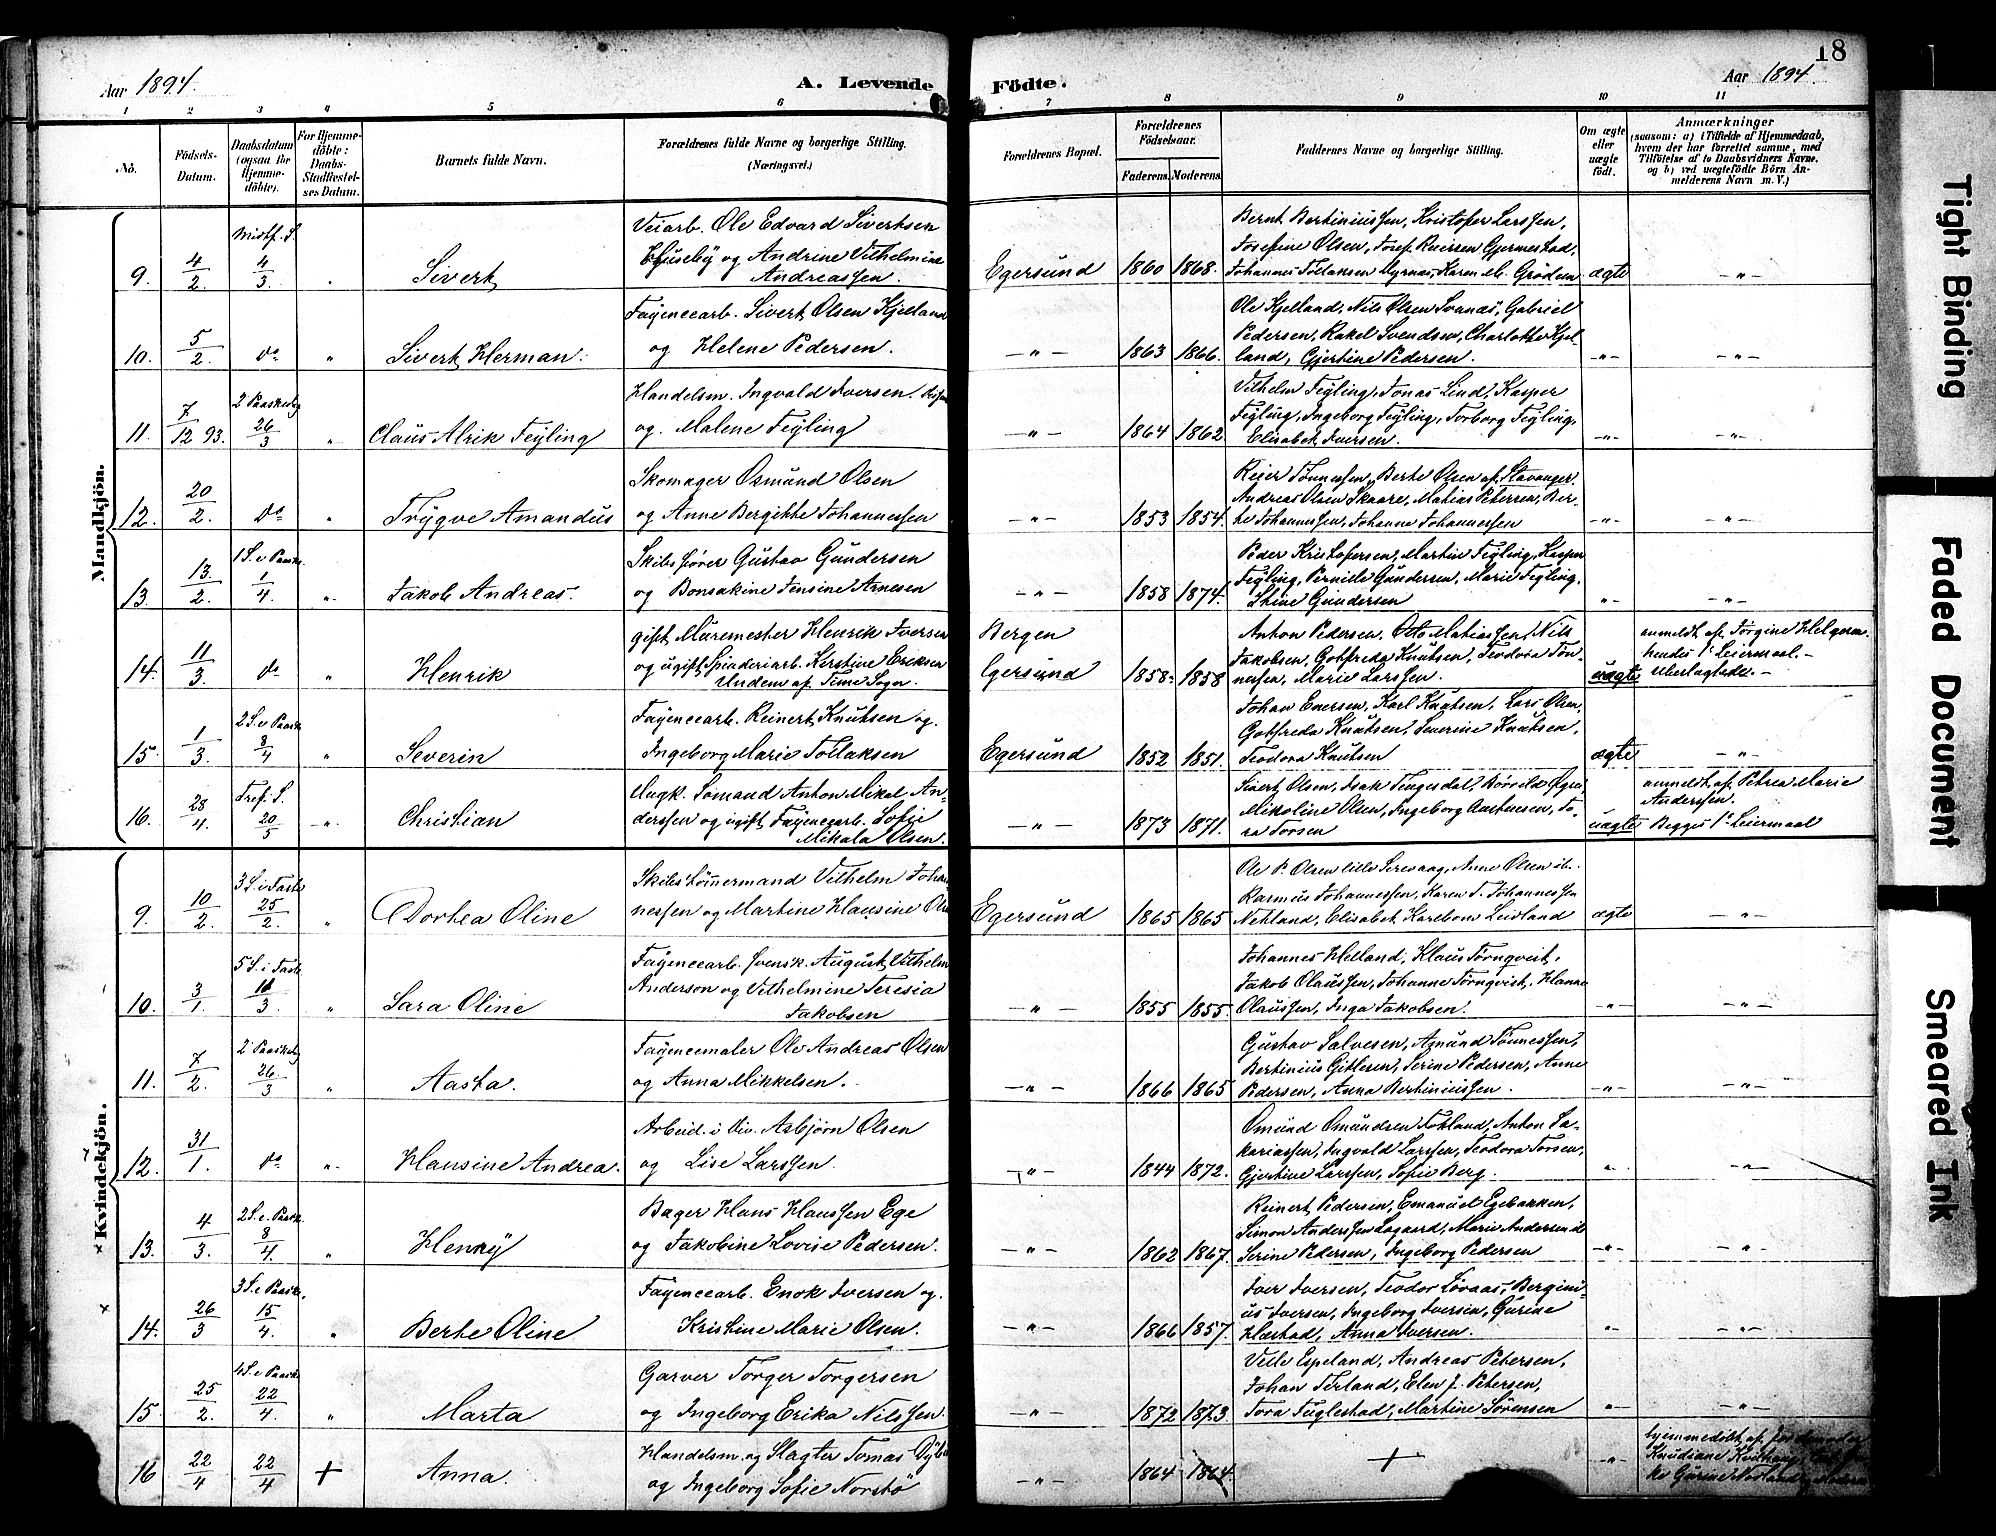 Aar 1894. A. Levende Födte. Aar 1894 18
1 2 3 4 5 6 7 8 9 10 11
No.
Födsels-
Datum.
Daabsdatum
(ogsaa for
Hjemme-
döbte).
For Hjemme-
döbte:
Daabs-
Stadfestel-
ses Datum.
Barnets fulde Navn.
Forældrenes fulde Navne og borgerlige Stilling.
(Næringsvei.)
Forældrenes Bopæl.
Forældrenes
Födselsaar.
Faderens. Moderens.
Faddernes Navne og borgerlige Stilling.
Om ægte
eller
uægte
födt.
Anmærkninger
(saasom: a) i Tilfælde af Hjemmedaab,
hvem der har forrettet samme, med
Tilföielse af to Daabsvidners Navne,
og b) ved uægtefödte Börn An-
melderens Navn m. V.)
Mandkjön.
9. 4/2. Midtf. S. 4/3. " Sivert
Veiarb. Ole Edvard Sivertsen
Huseby og Andrine Vilhelmine
Andreassen.
Egersund 1860 1868.
Bernt Bertiniussen, Kristofer Larssen,
Josefine Olsen, Josef Gjermestad,
Johannes Tollaksen Myrnas, Karen M. Grödem
ægte —"—
10. 5/2. do " Sivert Herman.
Fayencearb. Sivert Olsen Kjelland
og Helene Pedersen.
—"— 1863 1866.
Ole Kjelland, Nils Olsen Svanæs, Gabriel
Pedersen, Rakel Svendsen, Charlotte Kjel-
land, Gjertine Pedersen.
—"— —"—
11. 7/12 93. 2 Paaskedag 26/3 " Claus Alrik Feyling
Handelsm. Ingvald Iversen.
og Malene Feyling
—"— 1864 1862
Vilhelm Feyling, Jonas Lind, Kasper
Feyling, Ingeborg Feyling, Torborg Feyling,
Elisabet Iversen.
—"— —"—
12. 20/2. do " Trygve Amandus
Skomager Osmund Olsen
og Anne Bergitte Johannessen
—"— 1853 1854.
Reier Tönnessen, Berte Olsen af Stavanger,
Andreas Olsen Skaare, Matias Petersen, Ber-
te Johannessen, Johanne Johannessen
—"— —"—
13. 13/2. 1 S. e Paaske 1/4. " Jakob Andreas.
Skibsförer Gustav Gundersen
og Bonsakine Jensine Arnesen
—"— 1858 1874.
Peder Kristofersen, Martin Feyling, Kasper
Feyling, Pernille Gundersen, Marie Feyling,
Stine Gundersen
" —"—
14. 11/3. do " Henrik
gift Muremester Henrik Iversen
og ugift Spinderiarb. Kerstine Eriksen
Undem af Time Sogn.
Bergen
Egersund 1858. 1858
Anton Pedersen, Otto Matiassen, Nils
Jakobsen, Gotfreda Knutsen, Teodora Tön-
nessen, Marie Larssen.
uægte
anmeldt af Jörgine Helgesen.
hendes 1ste Leiermaal.—
15. 1/3. 2 S. e Paask 8/4 " Severin
Fayencearb. Reinert Knutsen og
Ingeborg Marie Tollaksen
Egersund 1852 1851.
Johan Enersen, Karl Knutsen, Lars Olsen,
Gotfreda Knutsen, Severine Knutsen,
Teodora Knutsen
ægte —"—
16. 28/4. Tref. S. 20/5 —"— Christian
Ungk. Sömand Anton Mikal An-
derssen og ugift Fayencearb. Sofie
Mikala Olsen.
—"— 1873 1871.
Sivert Olsen, Isak Tengesdal, Börvild Ogrei
Mikoline Olsen, Ingeborg Aarstausen, To-
ra Torsen
uægte
anmeldt af Petrea Marie
Anderssen.
Begges 1ste Leiermaal
Kvindekjön.
9. 10/2. 3 S. i Faste 25/2. " Dortea Oline
Skibstömmermand Vilhelm Johan-
nessen og Martine Klausine
Egersund 1865 1865
Ole P. Olsen lille Serevaag, Anne Olsen ib.
Rasmus Johannessen, Karen T. Johannessen
Netland, Elisabet Karlbom Leidland
ægte —"—
10. 3/1. 5 S. i Faste 11/3. " Sara Oline
Fayencearb. svensk August Vilhelm
Anderson og Vilhelmine Teresia
Jakobsen
—"— 1855 1855.
Johannes Helland, Klaus Törnqvist,
Jakob Olaussen, Johanne Törnqvist, Hanna
Olaussen, Inga Jakobsen.
—"— —"—
11. 7/2. 2 Paaskedag 26/3 " Aasta.
Fayencemaler Ole Andreas Olsen
og Anna Mikkelsen.
—"— 1866 1865
Gustav Salvesen, Asmund Tönnessen,
Bertinius Gitlesen, Serine Pedersen, Anne
Pedersen, Anna Bertiniussen.
—"— —"—
12. 31/1. do " Hansine Andrea.
Arbeid. i Div. Asbjörn Olsen
og Lise Larssen.
—"— 1844 1872.
Omund Omundsen Fotland, Anton Sa-
kariassen, Ingvald Larssen, Teodora Torsen,
Gjertine Larssen, Sofie Berg.
" —"—
13. 4/3. 2 S. e. Paask. 8/4. " Henny
Bager Hans Hanssen Ege
og Jakobine Lovise Pedersen.
—"— 1862 1867.
Reinert Pedersen, Emanuel Egebakken,
Simon Anderssen Lagaard, Marie Andersen
Serine Pedersen, Ingeborg Pedersen
—"— —"—
14. 26/3 3 S. e Paaske. 15/4. " Berte Oline
Fayencearb. Enok Iversen og
Kristine Marie Olsen.
—"— 1866 1857.
Iver Iversen, Teodor Lövaas, Bergini-
us Iversen, Ingeborg Iversen, Gurine
Hæstad, Anna Iversen.
" —"—
15. 25/2. 4 S. e Paaske 22/4. " Marta
Garver Torger Torgersen
og Ingeborg Erika Nilssen.
—"— 1872 1873.
Velle Espeland, Andreas Petersen,
Johan Terland, Elen J. Petersen,
Tora Fuglestad, Martine Sörensen
" —"—
16 22/4 22/4 + Anna.
Handelsm. og Slagter Tomas
og Ingeborg Sofie Norstö
—"— 1864 1864.
+
"
hjemmedöbt af Jordemoder
Knudsine
Gurine
Tight Binding
Faded Document
Smeared Ink